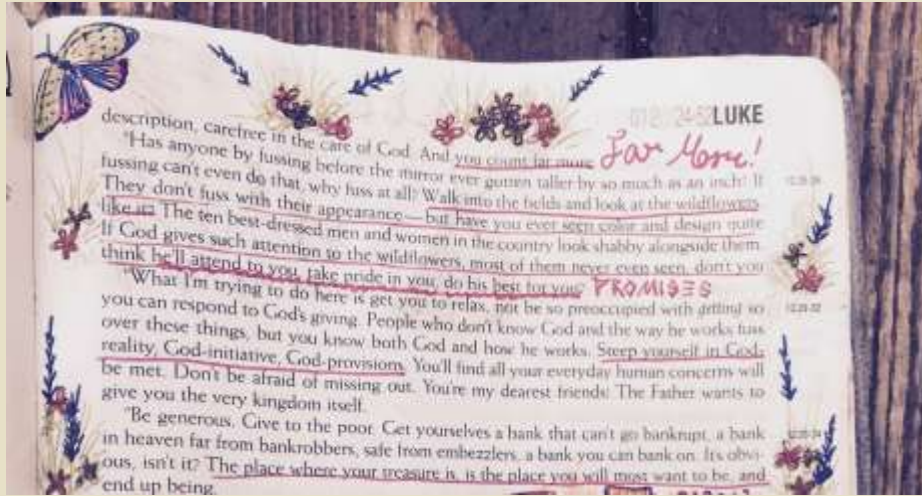 LUKE
description, carefree in the care of God. And you count far more Far More!
"Has anyone by fussing before the mirror ever gotten taller by so much as an inch? If
fussing can't even do that, why fuss at all? Walk into the fields and look at the wildflowers.
They don't fuss with their appearance—but have you ever seen color and design quite
like it? The ten best-dressed men and women in the country look shabby alongside them.
If God gives such attention to the wildflowers, most of them never even seen, don't you
think he'll attend to you, take pride in you, do his best for you? PROMISES
"What I'm trying to do here is get you to relax, not be so preoccupied with getting so
you can respond to God's giving. People who don't know God and the way he works fuss
over these things, but you know both God and how he works. Steep yourself in God-
reality, God-initiative, God-provisions. You'll find all your everyday human concerns will
be met. Don't be afraid of missing out. You're my dearest friends! The Father wants to
give you the very kingdom itself.
"Be generous. Give to the poor. Get yourselves a bank that can't go bankrupt, a bank
in heaven far from bankrobbers, safe from embezzlers, a bank you can bank on. It's obvi-
ous, isn't it? The place where your treasure is, is the place you will most want to be, and
end up being.